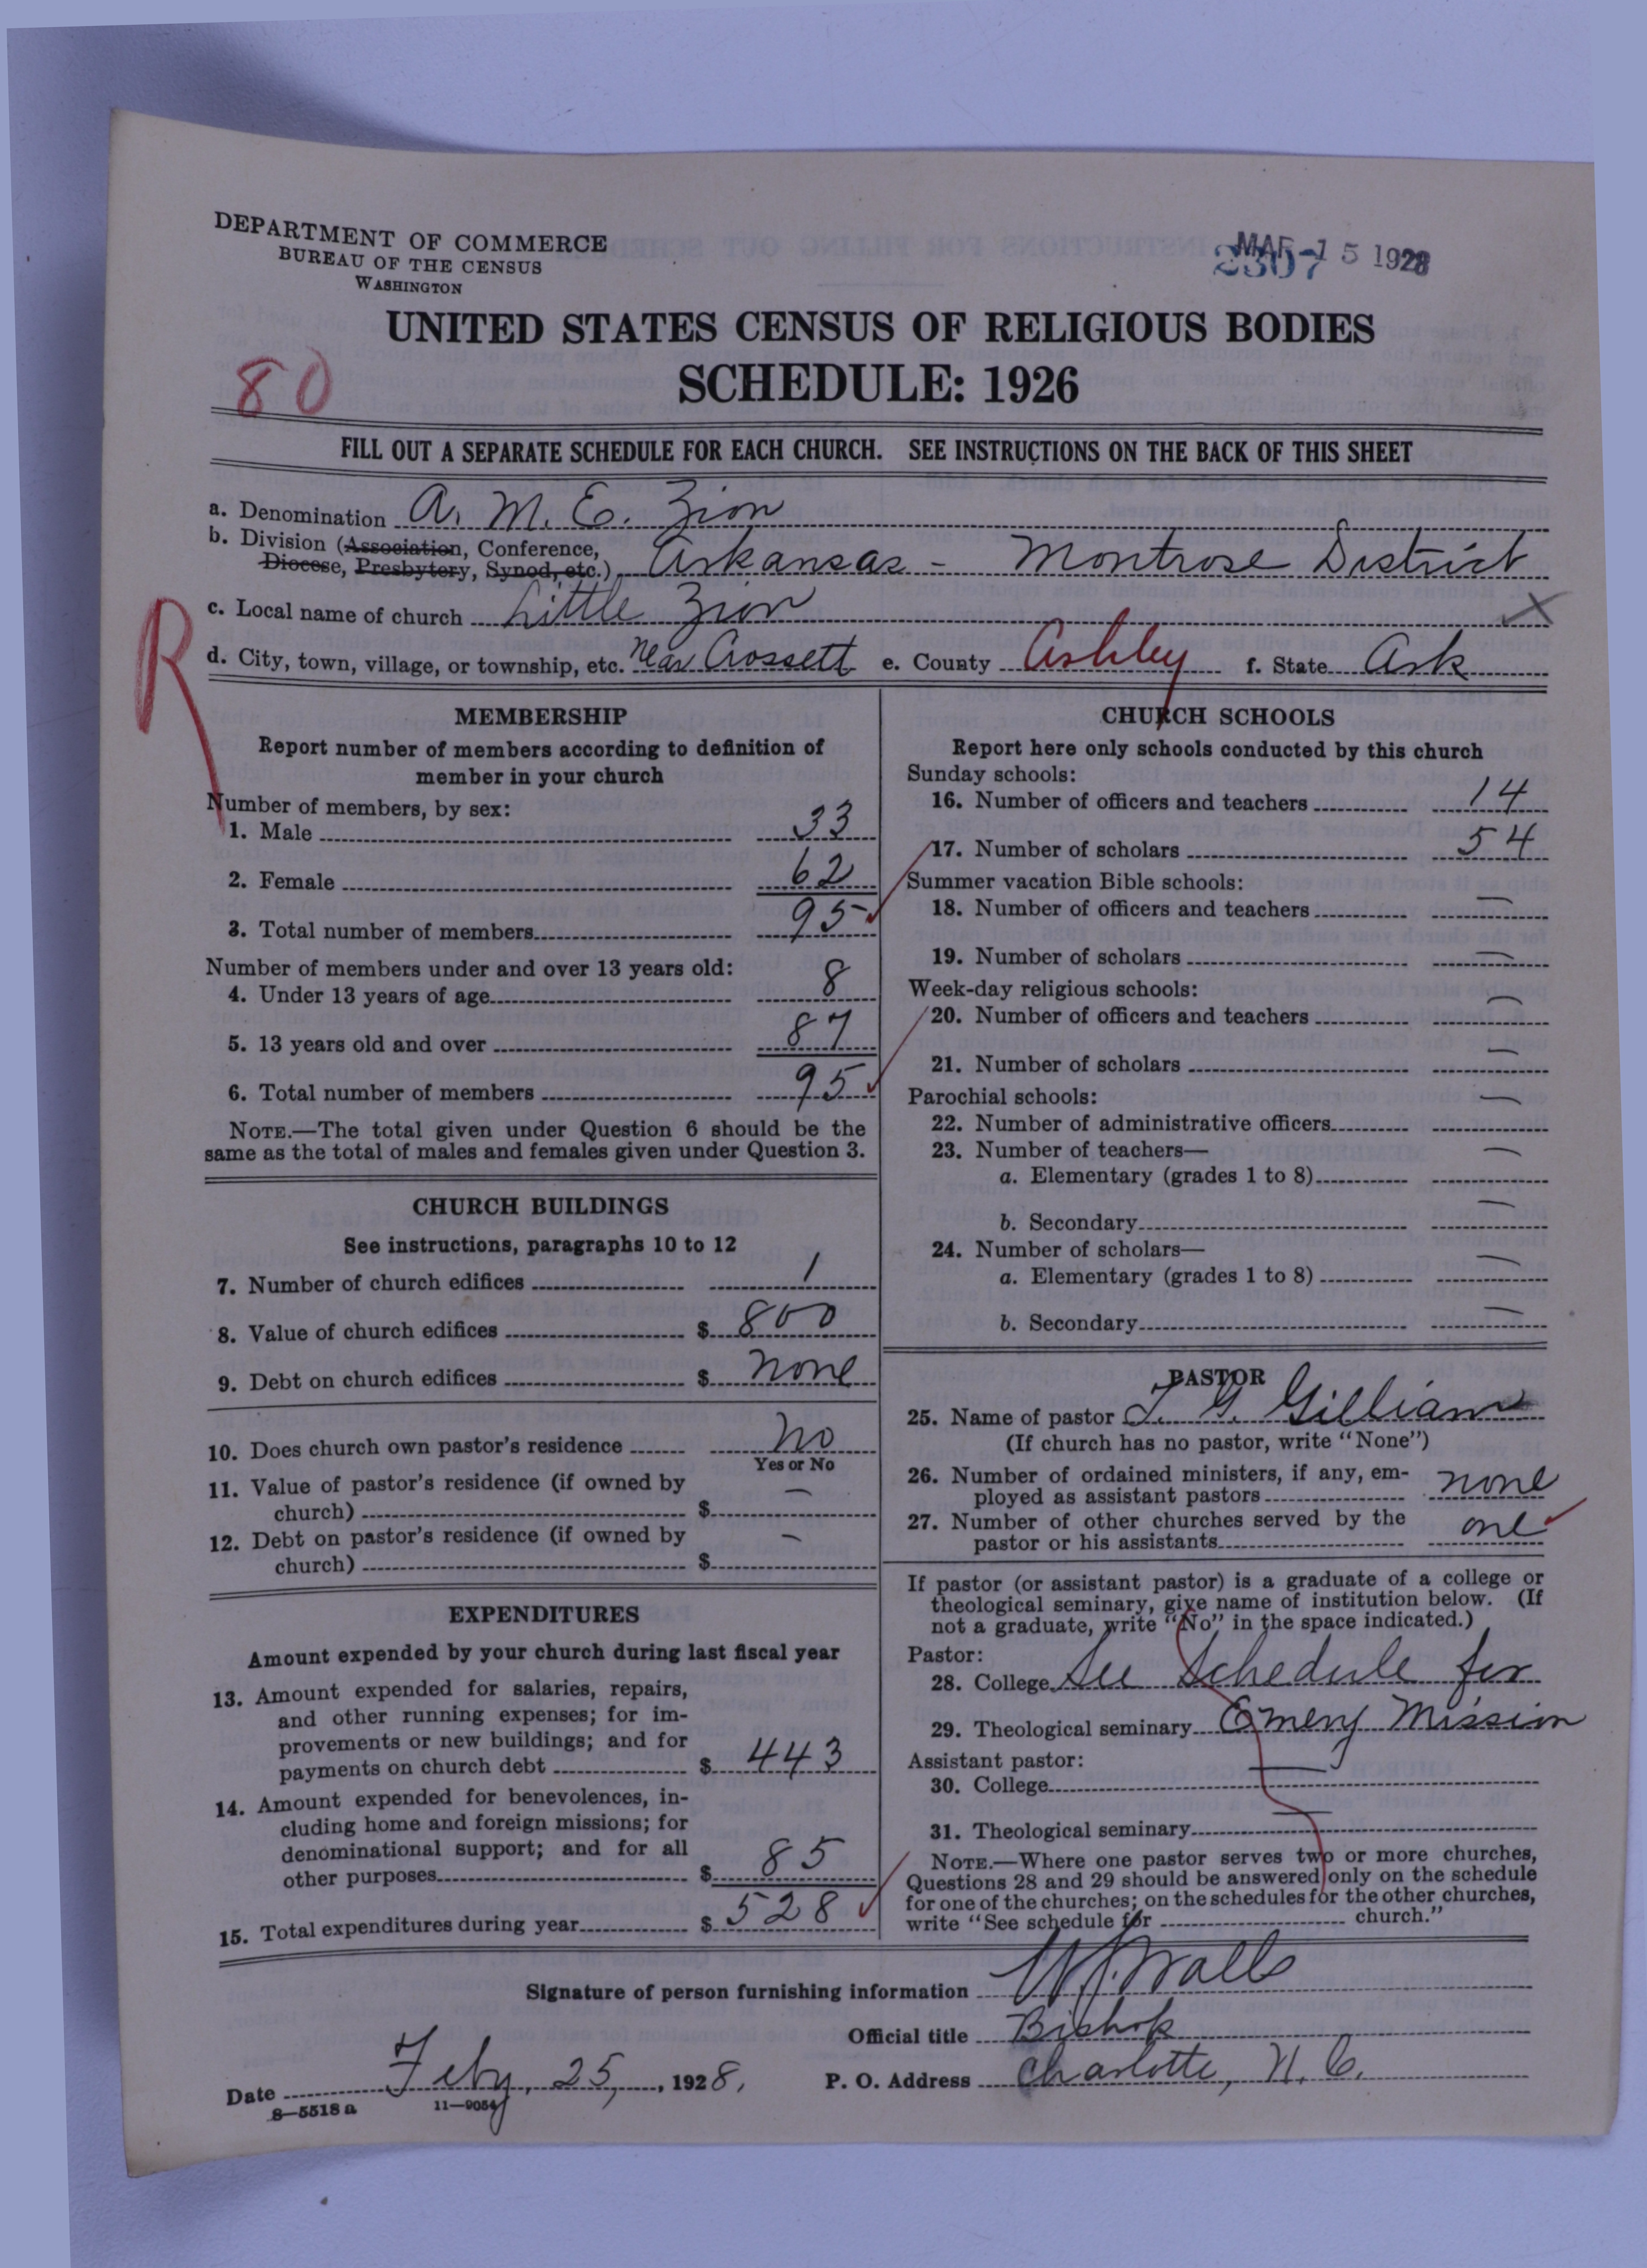 DEPARTMENT OF COMMERCE
BUREAU OF THE CENSUS
WASHINGTON
2307
MAR 15 1928
UNITED STATES CENSUS OF RELIGIOUS BODIES
SCHEDULE: 1926
80
FILL OUT A SEPARATE SCHEDULE FOR EACH CHURCH. SEE INSTRUCTIONS ON THE BACK OF THIS SHEET
a. Denomination A. M. E. Zion
b. Division (Association, Conference,
Diocese, Presbytery, Synod, etc.) Arkansas - Montrose District
c. Local name of church Little Zion X
R
d. City, town, village, or township, etc. Near Crossett e. County Ashley f. State Ark
MEMBERSHIP
Report number of members according to definition of
member in your church
Number of members, by sex:
1. Male 33
2. Female 62
3. Total number of members 95
Number of members under and over 13 years old:
4. Under 13 years of age 8
5. 13 years old and over 87
6. Total number of members 95
NOTE.—The total given under Question 6 should be the
same as the total of males and females given under Question 3.
CHURCH BUILDINGS
See instructions, paragraphs 10 to 12
7. Number of church edifices 1
8. Value of church edifices $ 800
9. Debt on church edifices $ none
10. Does church own pastor's residence No
Yes or No
11. Value of pastor's residence (if owned by
church) $ —
12. Debt on pastor's residence (if owned by
church) $ —
EXPENDITURES
Amount expended by your church during last fiscal year
13. Amount expended for salaries, repairs,
and other running expenses; for im-
provements or new buildings; and for
payments on church debt $ 443
14. Amount expended for benevolences, in-
cluding home and foreign missions; for
denominational support; and for all
other purposes $ 85
15. Total expenditures during year $ 528
CHURCH SCHOOLS
Report here only schools conducted by this church
Sunday schools:
16. Number of officers and teachers 14
17. Number of scholars 54
Summer vacation Bible schools:
18. Number of officers and teachers —
19. Number of scholars —
Week-day religious schools:
20. Number of officers and teachers —
21. Number of scholars —
Parochial schools:
22. Number of administrative officers —
23. Number of teachers—
a. Elementary (grades 1 to 8) —
b. Secondary —
24. Number of scholars—
a. Elementary (grades 1 to 8) —
b. Secondary —
PASTOR
25. Name of pastor T. G. Gilliam
(If church has no pastor, write "None")
26. Number of ordained ministers, if any, em-
ployed as assistant pastors none
27. Number of other churches served by the
pastor or his assistants one
If pastor (or assistant pastor) is a graduate of a college or
theological seminary, give name of institution below. (If
not a graduate, write "No" in the space indicated.)
Pastor:
28. College See Schedule for
29. Theological seminary Emery Mission
Assistant pastor:
30. College —
31. Theological seminary —
NOTE.—Where one pastor serves two or more churches,
Questions 28 and 29 should be answered only on the schedule
for one of the churches; on the schedules for the other churches,
write "See schedule for church."
Signature of person furnishing information W. J. Walls
Official title Bishop
Date Feby. 25, 1928, P. O. Address Charlotte, N. C.
8—5518a 11—9054